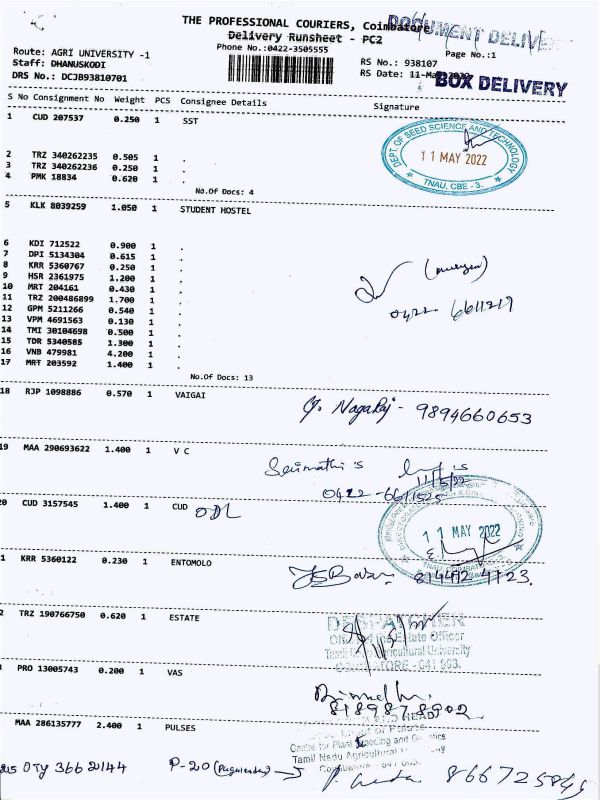 THE PROFESSIONAL COURIERS, Coimbatore
DOCUMENT DELIVERY
Delivery Runsheet - PC2
Phone No.:0422-3505555
Page No.:1
Route: AGRI UNIVERSITY -1
Staff: DHANUSKODI
DRS No.: DCJB93810701
RS No.: 938107
RS Date: 11-May-2022
BOX DELIVERY
S No Consignment No Weight PCS Consignee Details Signature
1 CUD 207537 0.250 1 SST
DEPT OF SEED SCIENCE AND TECHNOLOGY
11 MAY 2022
TNAU, CBE - 3.
2 TRZ 340262235 0.505 1 .
3 TRZ 340262236 0.250 1 .
4 PMK 18834 0.620 1 .
No.Of Docs: 4
5 KLK 8039259 1.050 1 STUDENT HOSTEL
6 KDI 712522 0.900 1 .
7 DPI 5134304 0.615 1 .
8 KRR 5360767 0.250 1 .
9 HSR 2361975 1.200 1 .
10 MRT 204161 0.430 1 .
11 TRZ 200486899 1.700 1 .
12 GPM 5211266 0.540 1 .
13 VPM 4691563 0.130 1 .
14 TMI 30104698 0.500 1 .
15 TDR 5340585 1.300 1 .
16 VNB 479981 4.200 1 .
17 MRT 203592 1.400 1 .
0422- 6611219
No.Of Docs: 13
18 RJP 1098886 0.570 1 VAIGAI
Nagaraj - 9894660653
19 MAA 290693622 1.400 1 V C
11/5/22
0422 - 6611525
20 CUD 3157545 1.400 1 CUD ODL
11 MAY 2022
TNAU, COIMBATORE
1 KRR 5360122 0.230 1 ENTOMOLO
814424723.
2 TRZ 190766750 0.620 1 ESTATE
DESPATCHER
Office of the Estate Officer
Tamil Nadu Agricultural University
COIMBATORE - 641 003.
PRO 13005743 0.200 1 VAS
8189878902
MAA 286135777 2.400 1 PULSES
AND HEAD
Centre for Plant Breeding and Genetics
Tamil Nadu Agricultural
Coimbatore - 641 003.
215 OTY 366 20144 P-20
866725845